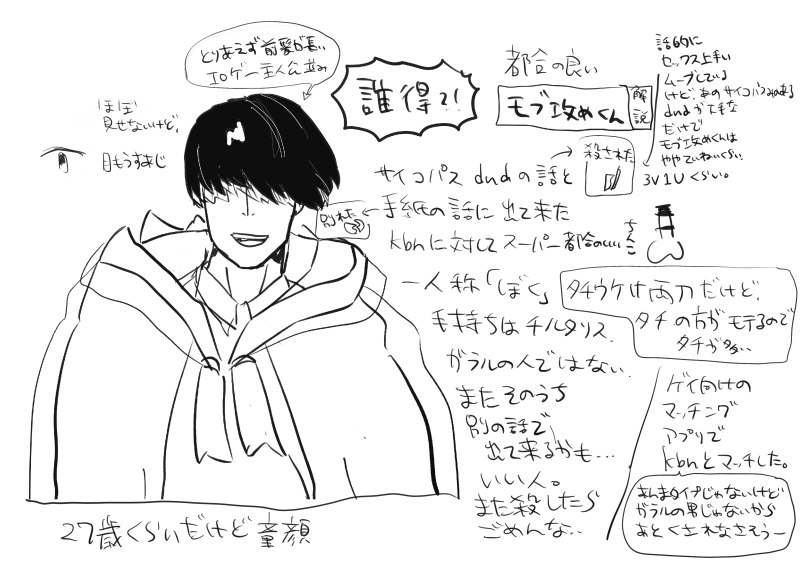 とりあえず前髪が長い
エロゲー主人公並み
誰得?!
都合の良い
モブ攻めくん
解説
話的に
セックス上手い
ムーブしている
けど、あのサイコパスみのある
dndが下手な
だけで
モブ攻めくんは
ややていねいくらい。
3V1Uくらい。
ほぼ
見せないけど、
目もうすあじ
サイコパスdndの話と
殺された
別れた
手紙の話に出て来た
kbnに対してスーパー都合のいい
ちんこ
一人称「ぼく」
手持ちはチルタリス
ガラルの人ではない
またそのうち
別の話で
出て来るかも…
いい人。
また殺したら
ごめんな…
タチウケは両刀だけど、
タチの方がモテるので
タチが多い
ゲイ向けの
マッチング
アプリで
kbnとマッチした。
あんまタイプじゃないけど
ガラルの男じゃないから
あとくされなさそうー
27歳くらいだけど童顔